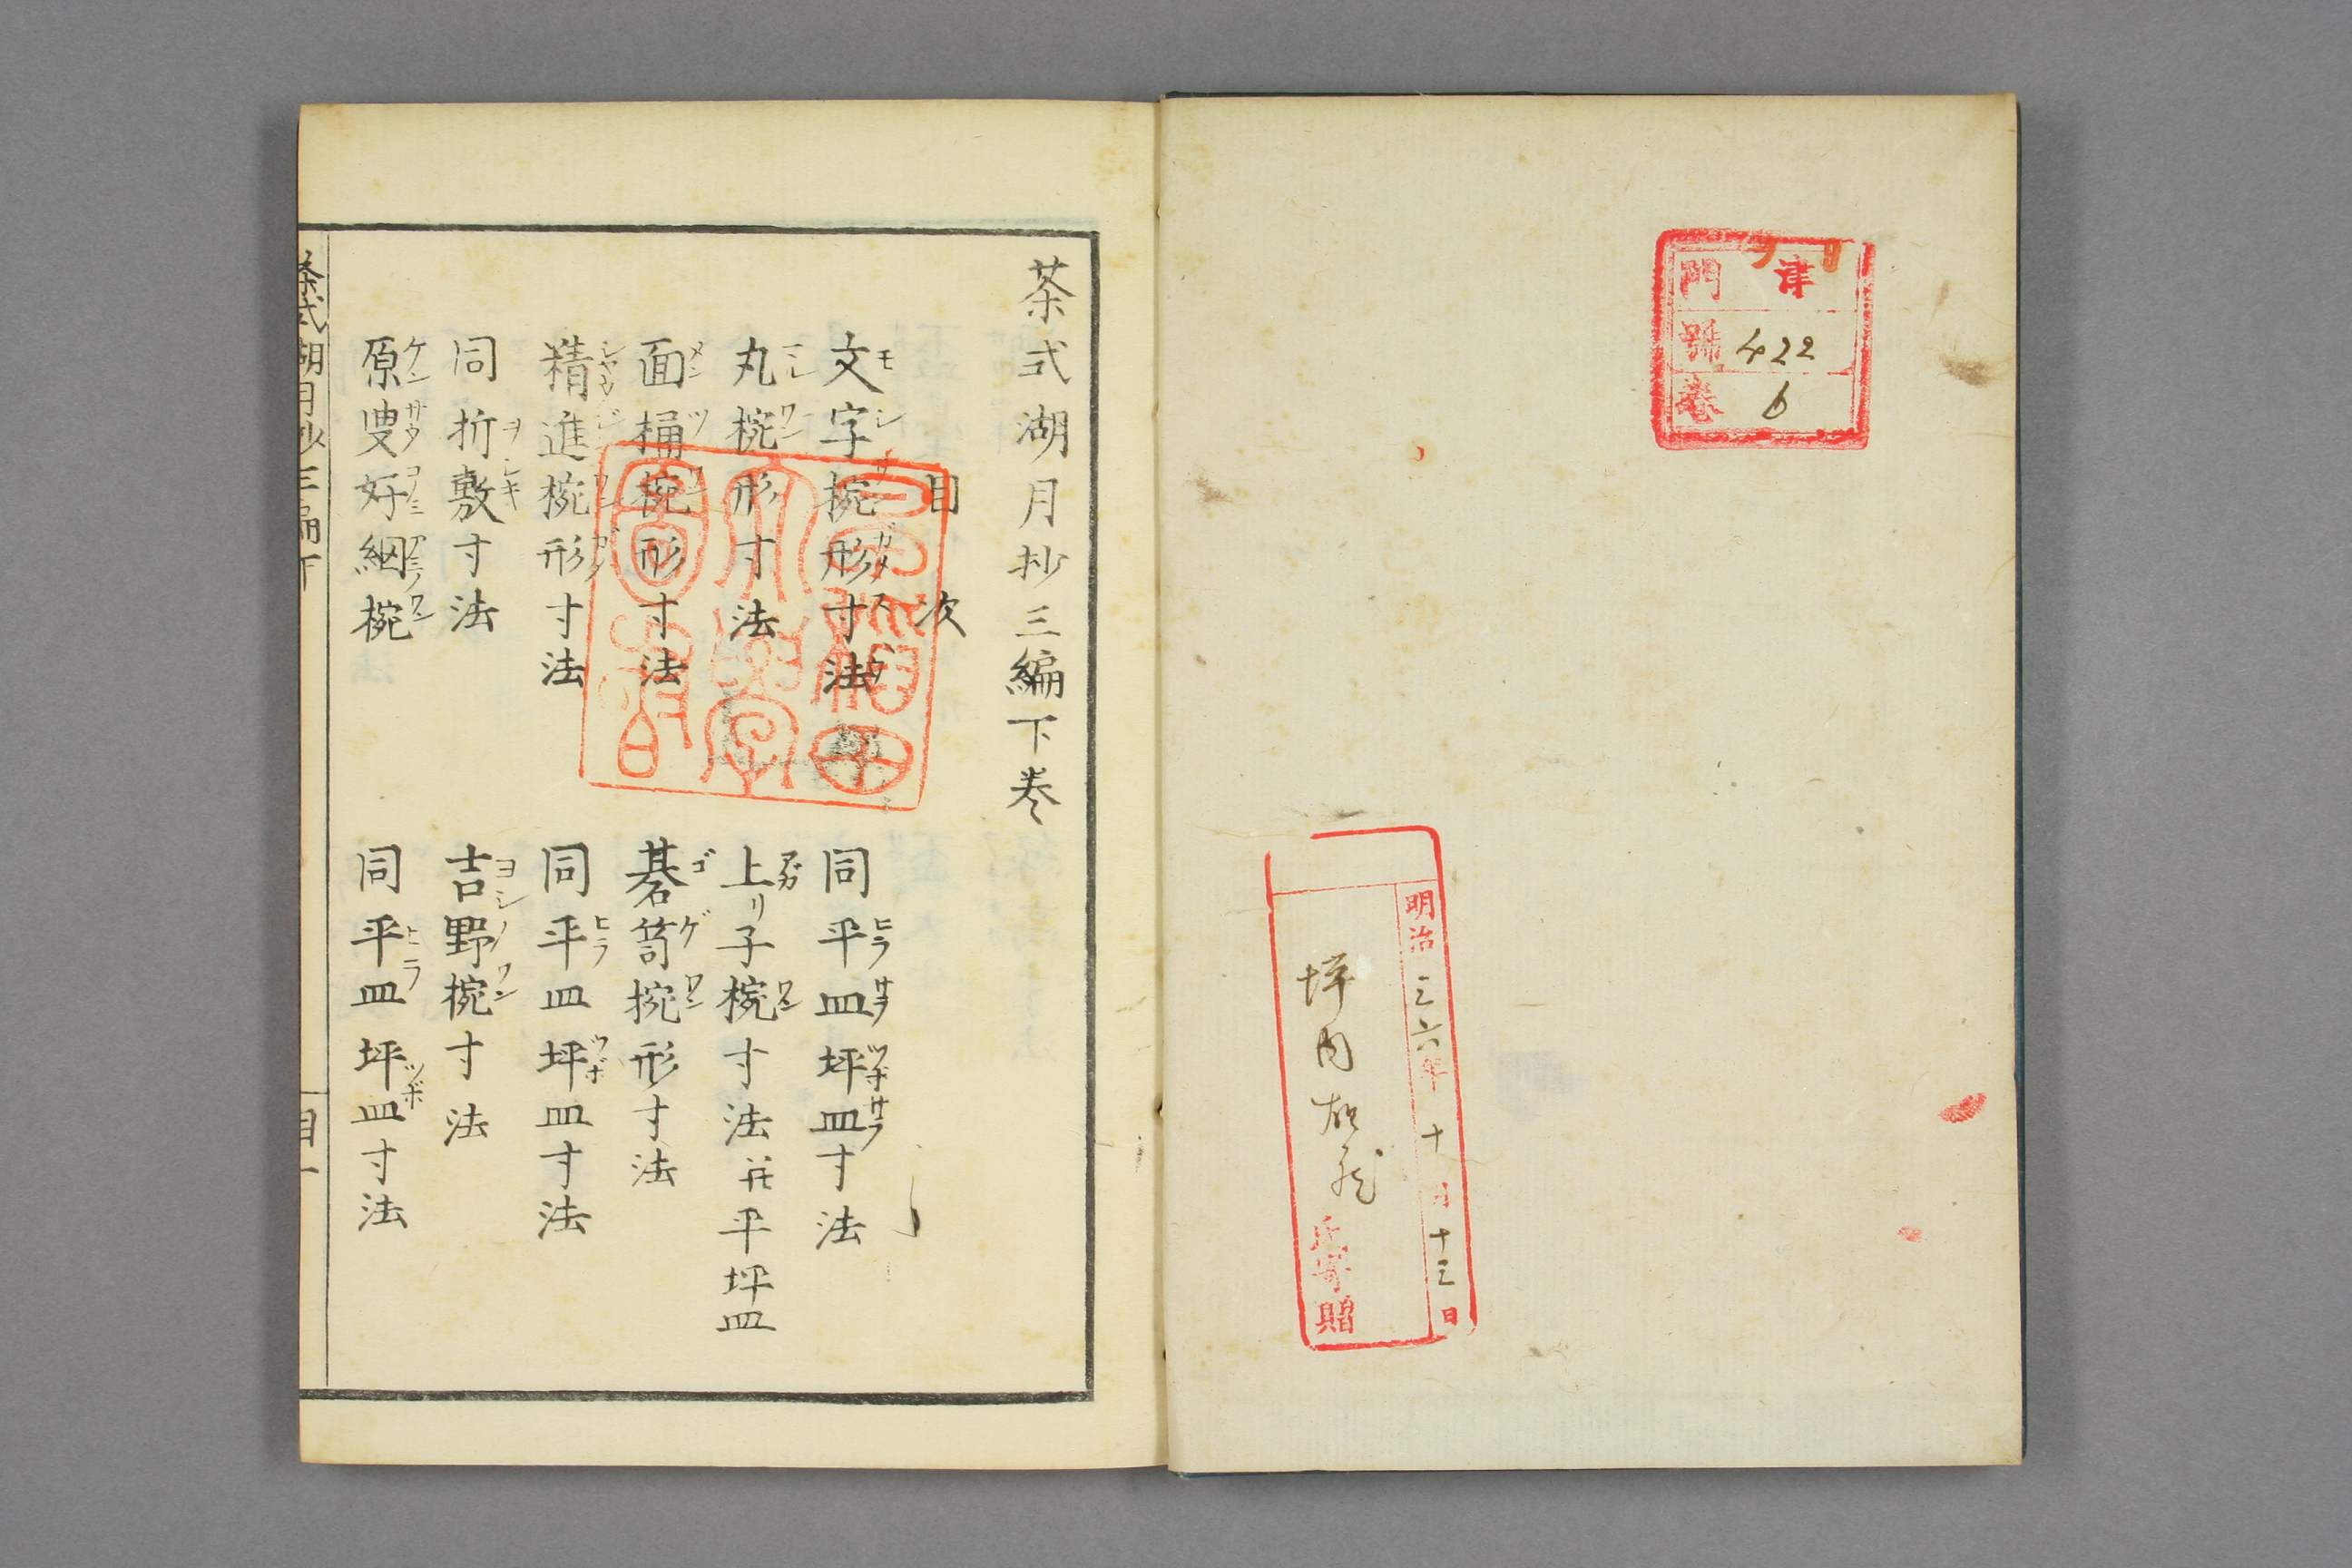 門 津
號 422
卷 6
明治三六年十月十三日
坪内雄蔵氏寄贈
茶式湖月抄三編下巻
目次
文字椀形寸法 同平皿坪皿寸法
丸椀形寸法 上リ子椀寸法并平坪皿
面桶椀形寸法 碁笥椀形寸法
精進椀形寸法 同平皿坪皿寸法
同折敷寸法 吉野椀寸法
原叟好網椀 同平皿坪皿寸法
茶式湖月抄三編下
早稲田大学図書